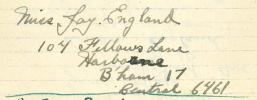 Miss Jay. England
104 Fellows Lane
Harborne
B'ham 17
Central 6461